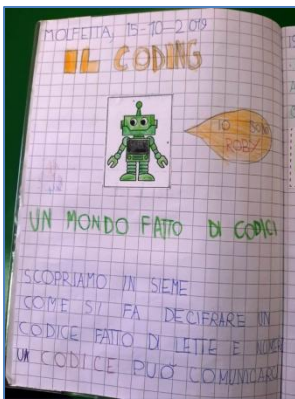 MOLFETTA, 15-10-2019
IL CODING
IO SONO
ROBY
UN MONDO FATTO DI CODICI
SCOPRIAMO IN SIEME
COME SI FA DECIFRARE UN
CODICE FATTO DI LETTE E NUMERI
UN CODICE PUÒ COMUNICARCI